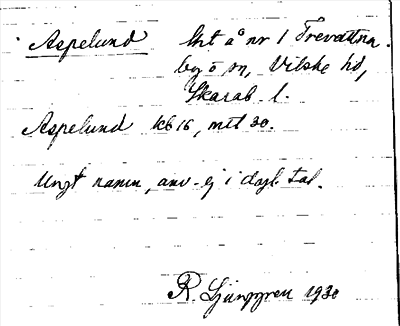 Aspelund lht å nr 1 Trevattna
by o sn, Vilske hd,
Skarab. l.
Aspelund kb 16, mtt 30.
Ungt namn, anv. ej i dagl. tal.
R. Ljunggren 1930